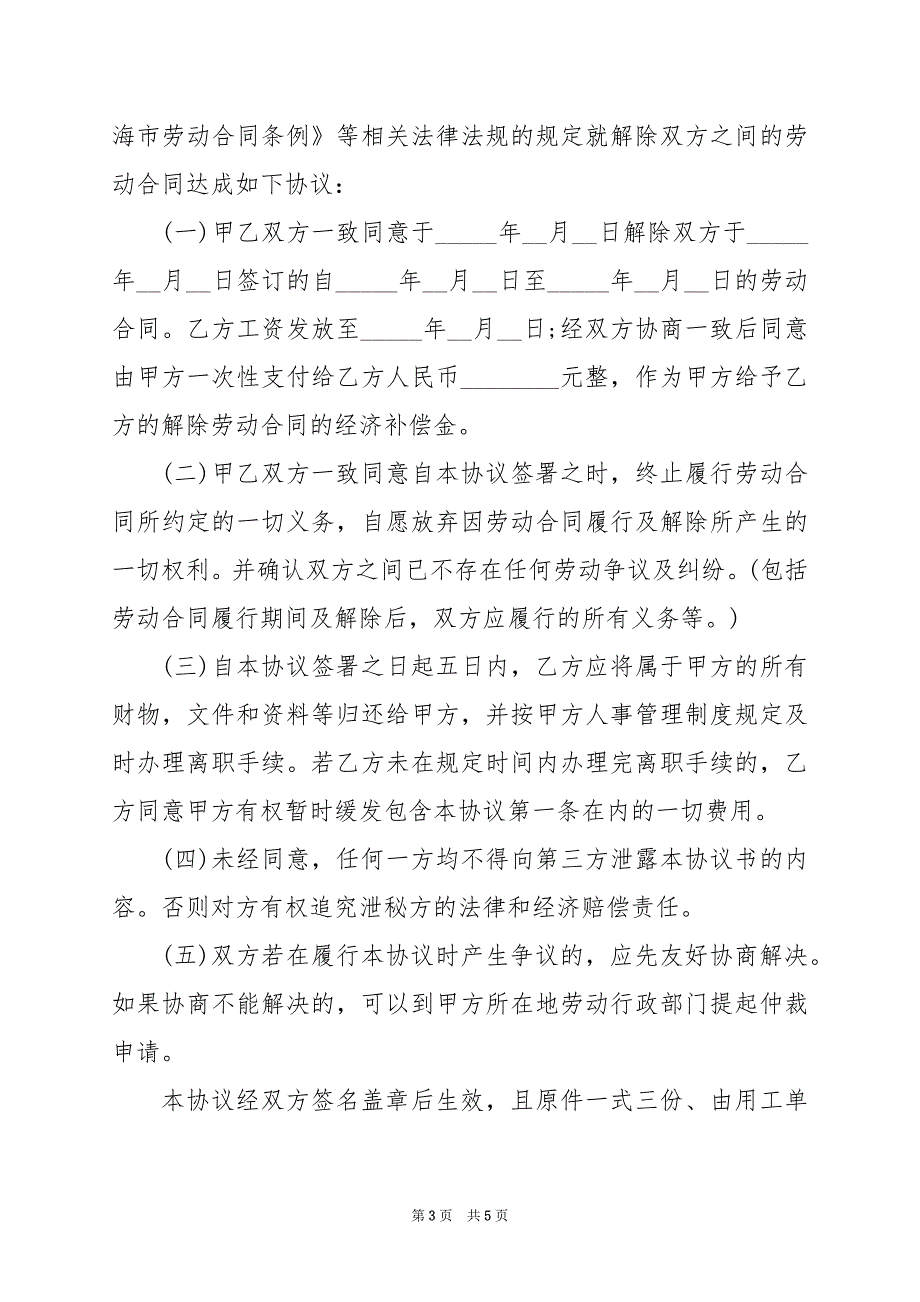 海市劳动合同条例》等相关法律法规的规定就解除双方之间的劳
动合同达成如下协议：
(一)甲乙双方一致同意于_____年__月__日解除双方于_____
年__月__日签订的自_____年__月__日至_____年__月__日的劳动
合同。乙方工资发放至_____年__月__日;经双方协商一致后同意
由甲方一次性支付给乙方人民币________元整，作为甲方给予乙
方的解除劳动合同的经济补偿金。
(二)甲乙双方一致同意自本协议签署之时，终止履行劳动合
同所约定的一切义务，自愿放弃因劳动合同履行及解除所产生的
一切权利。并确认双方之间已不存在任何劳动争议及纠纷。(包括
劳动合同履行期间及解除后，双方应履行的所有义务等。)
(三)自本协议签署之日起五日内，乙方应将属于甲方的所有
财物，文件和资料等归还给甲方，并按甲方人事管理制度规定及
时办理离职手续。若乙方未在规定时间内办理完离职手续的，乙
方同意甲方有权暂时缓发包含本协议第一条在内的一切费用。
(四)未经同意，任何一方均不得向第三方泄露本协议书的内
容。否则对方有权追究泄秘方的法律和经济赔偿责任。
(五)双方若在履行本协议时产生争议的，应先友好协商解决。
如果协商不能解决的，可以到甲方所在地劳动行政部门提起仲裁
申请。
本协议经双方签名盖章后生效，且原件一式三份、由用工单
第 3 页 共 5 页